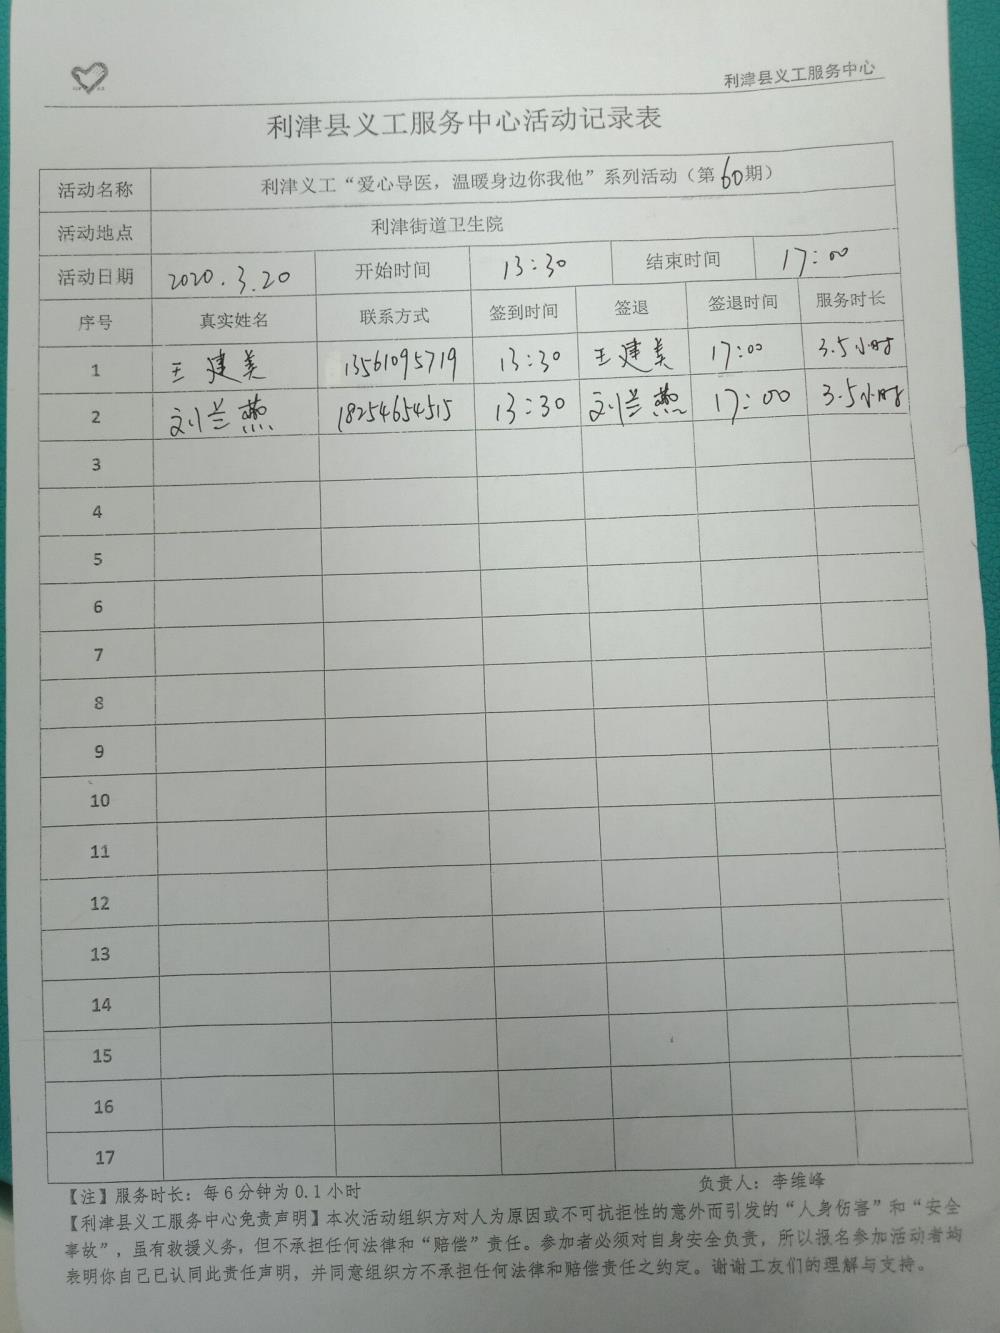 利津县义工服务中心
利津县义工服务中心活动记录表
活动名称 利津义工“爱心导医，温暖身边你我他”系列活动（第60期）
活动地点 利津街道卫生院
活动日期 2020.3.20 开始时间 13:30 结束时间 17:00
序号 真实姓名 联系方式 签到时间 签退 签退时间 服务时长
1 王建美 13561095719 13:30 王建美 17:00 3.5小时
2 刘兰燕 18254654515 13:30 刘兰燕 17:00 3.5小时
3
4
5
6
7
8
9
10
11
12
13
14
15
16
17
【注】服务时长：每6分钟为0.1小时 负责人：李维峰
【利津县义工服务中心免责声明】本次活动组织方对人为原因或不可抗拒性的意外而引发的“人身伤害”和“安全
事故”，虽有救援义务，但不承担任何法律和“赔偿”责任。参加者必须对自身安全负责，所以报名参加活动者均
表明你自己已认同此责任声明，并同意组织方不承担任何法律和赔偿责任之约定。谢谢工友们的理解与支持。